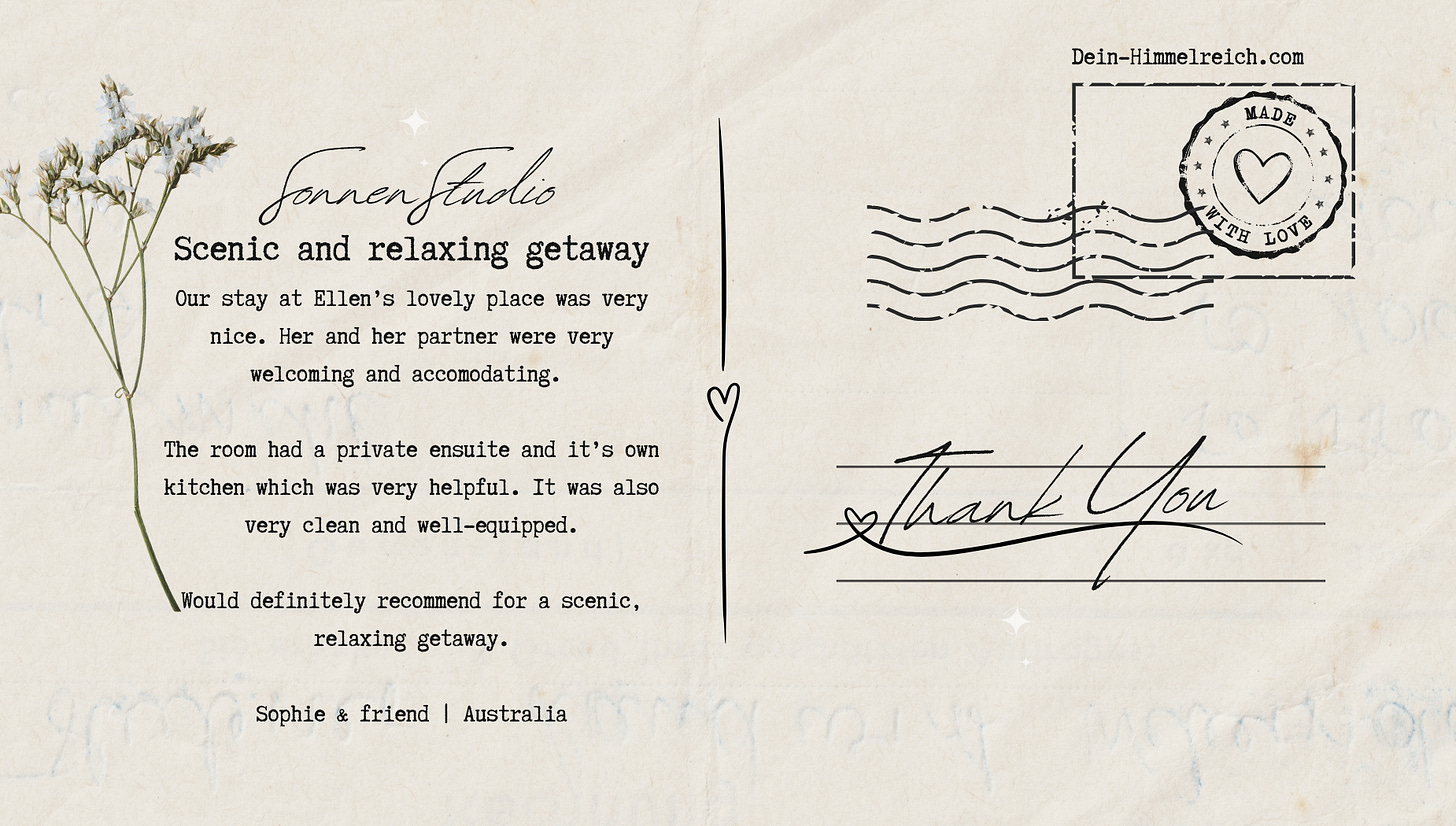 SonnenStudio
Scenic and relaxing getaway
Our stay at Ellen's lovely place was very
nice. Her and her partner were very
welcoming and accomodating.
The room had a private ensuite and it's own
kitchen which was very helpful. It was also
very clean and well-equipped.
Would definitely recommend for a scenic,
relaxing getaway.
Sophie & friend | Australia
Dein-Himmelreich.com
MADE
WITH LOVE
Thank You